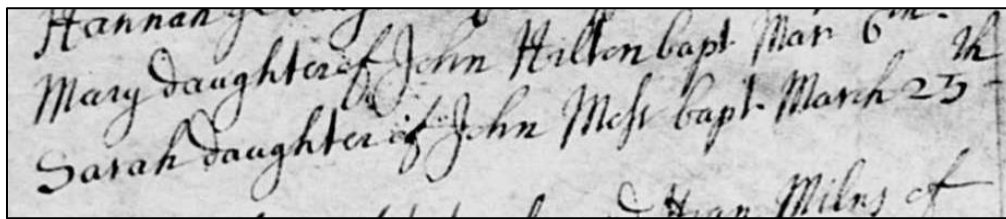 Hannah
Mary daughter of John Hilton bapt Mar 6th.
Sarah daughter of John Moss bapt. March 25th
Milns of